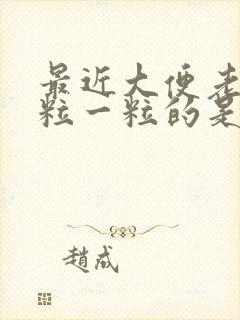 最近大便老
粒一粒的是
趙成